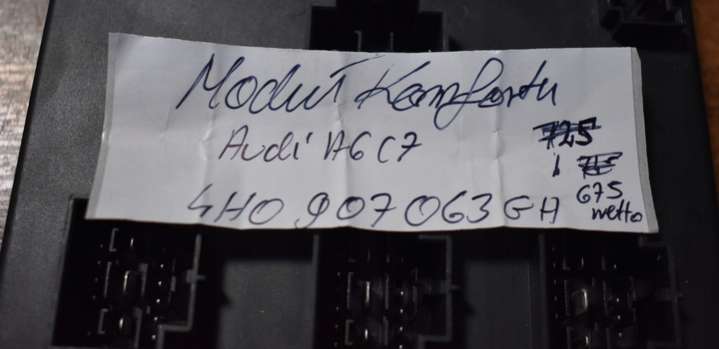 Moduł Komfortu
Audi A6 C7
4H0 907 063 GH
725
675
netto